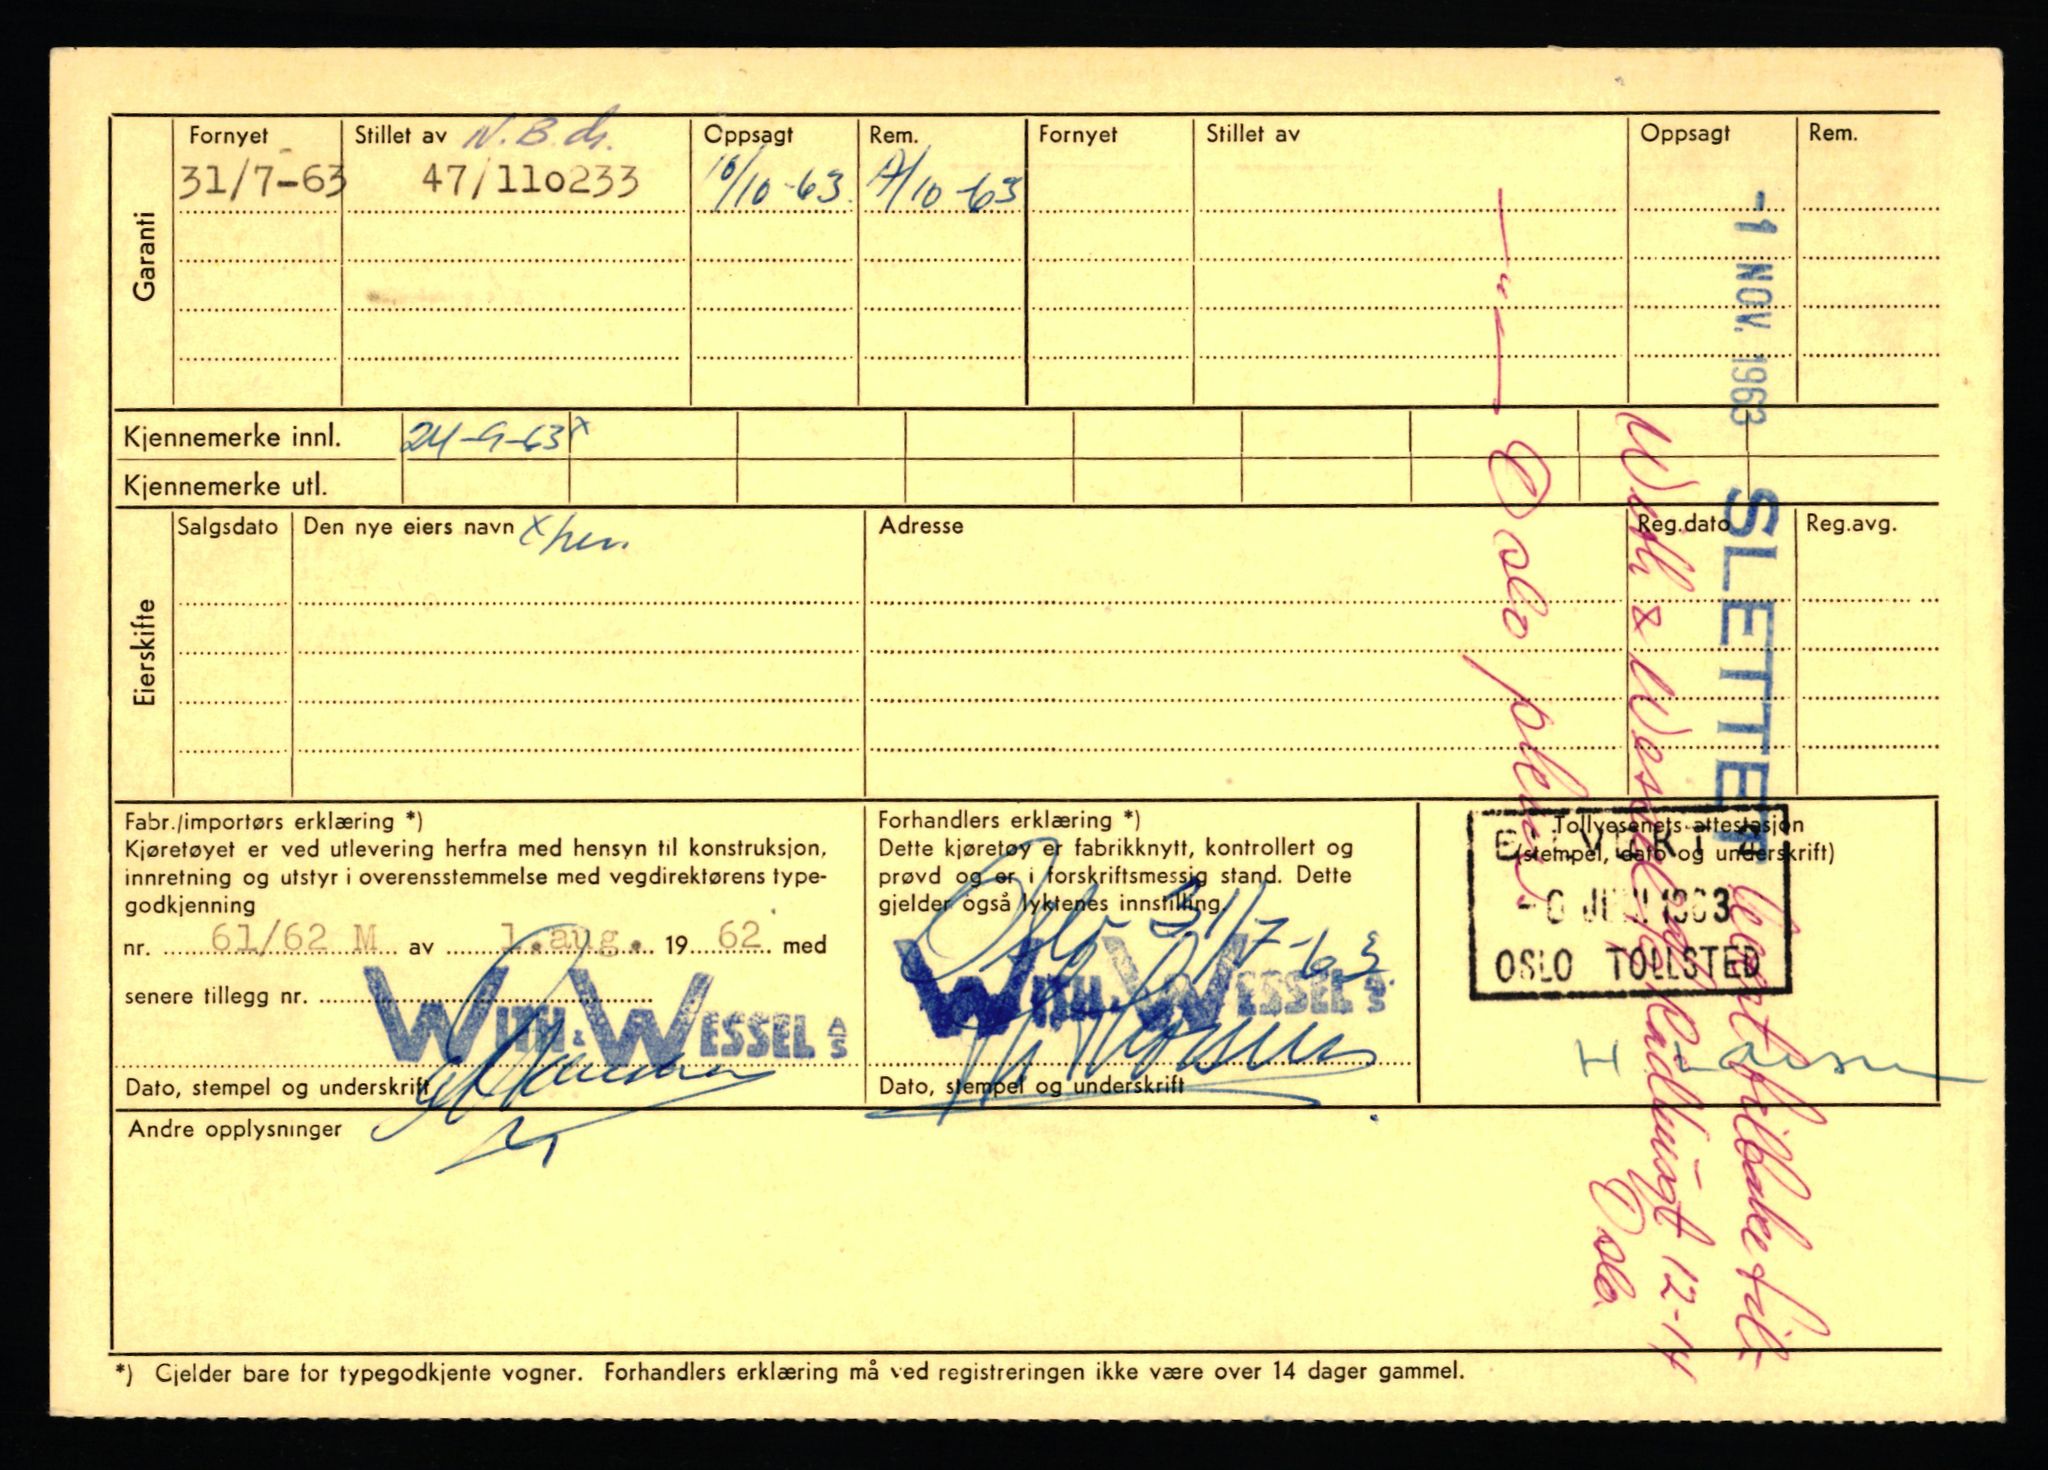 Garanti
Fornyet Stillet av N.B. ds. Oppsagt Rem. Fornyet Stillet av Oppsagt Rem.
31/7-63 47/110233 10/10-63. 17/10-63
Kjennemerke innl. 24-9-63x
Kjennemerke utl.
Eierskifte
Salgsdato Den nye eiers navn x hen. Adresse Reg.dato Reg.avg.
Fabr./importørs erklæring *)
Kjøretøyet er ved utlevering herfra med hensyn til konstruksjon,
innretning og utstyr i overensstemmelse med vegdirektørens type-
godkjenning
nr. 61/62 M av 1.aug. 19 62 med
senere tillegg nr.
WITH & WESSEL A/S
Dato, stempel og underskrift
Forhandlers erklæring *)
Dette kjøretøy er fabrikknytt, kontrollert og
prøvd og er i forskriftsmessig stand. Dette
gjelder også lyktenes innstilling.
Oslo 31/7-63
WITH & WESSEL A/S
Dato, stempel og underskrift
Tollvesenets attestasjon
(stempel, dato og underskrift)
OSLO TOLLSTED
Andre opplysninger
*) Gjelder bare for typegodkjente vogner. Forhandlers erklæring må ved registreringen ikke være over 14 dager gammel.
-1 NOV. 1963 SLETTET
With & Wessel A/S 12-14
Oslo.
— " — Oslo